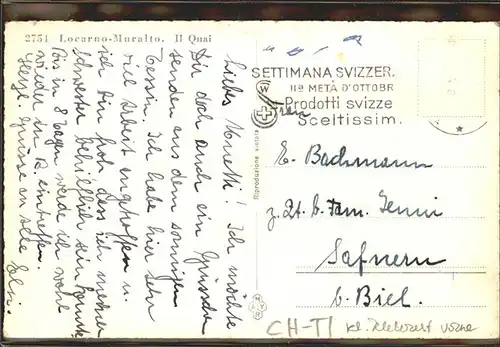 2754 Locarno-Muralto. Il Quai
Liebes Anneti! Ich möchte
Dir doch auch ein Grüsschen
senden aus dem sonnigen
Tessin. Ich habe hier sehr
viel Arbeit angetroffen u.
ich bin froh dass ich meiner
Schwester behilflich sein konnte
Bis in 8 Tagen werde ich wohl
wieder in B. eintreffen.
Herzl. Grüsse an alle
Riproduzione vietata
SETTIMANA SVIZZER.
IIa METÀ D'OTTOBR
Prodotti svizze
Sceltissim.
Frau
E. Bachmann
z. Zt. b. Fam. Jenni
Safnern
b. Biel.
CH-TI kl. Zelluwert vorne